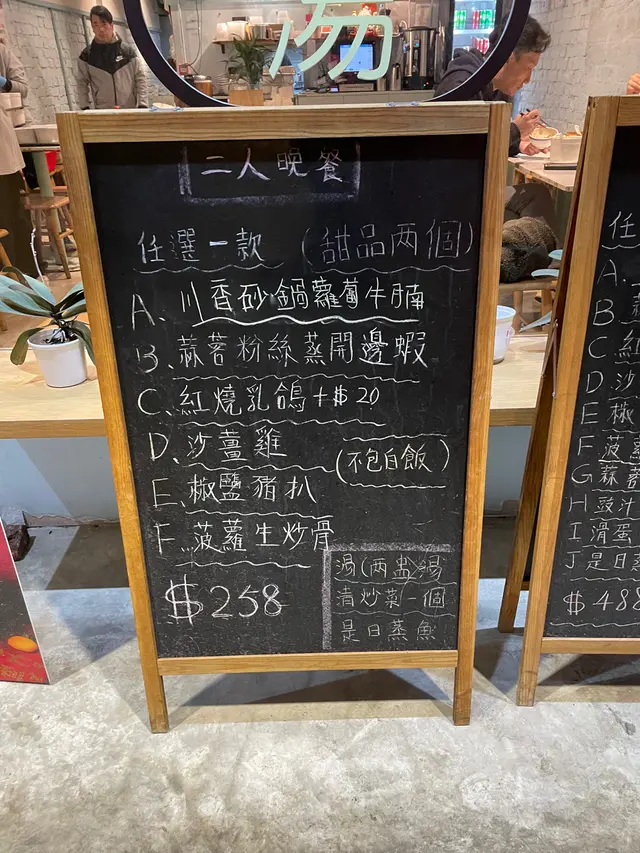 湯
二人晚餐
任選一款 (甜品两個)
A、川香砂鍋蘿蔔牛腩
B、蒜茖粉絲蒸開邊蝦
C、紅燒乳鴿+$20
D、沙薑雞
(不包白飯)
E、椒鹽豬扒
F、菠蘿生炒骨
$258
湯(两盅湯
炒菜一個
是日蒸魚
任
A.
B
蒜
C 紅
D 沙
E 椒
F 菠蘿
G 蒜
H 豉汁
I 滑蛋
J 是日蒸
$488